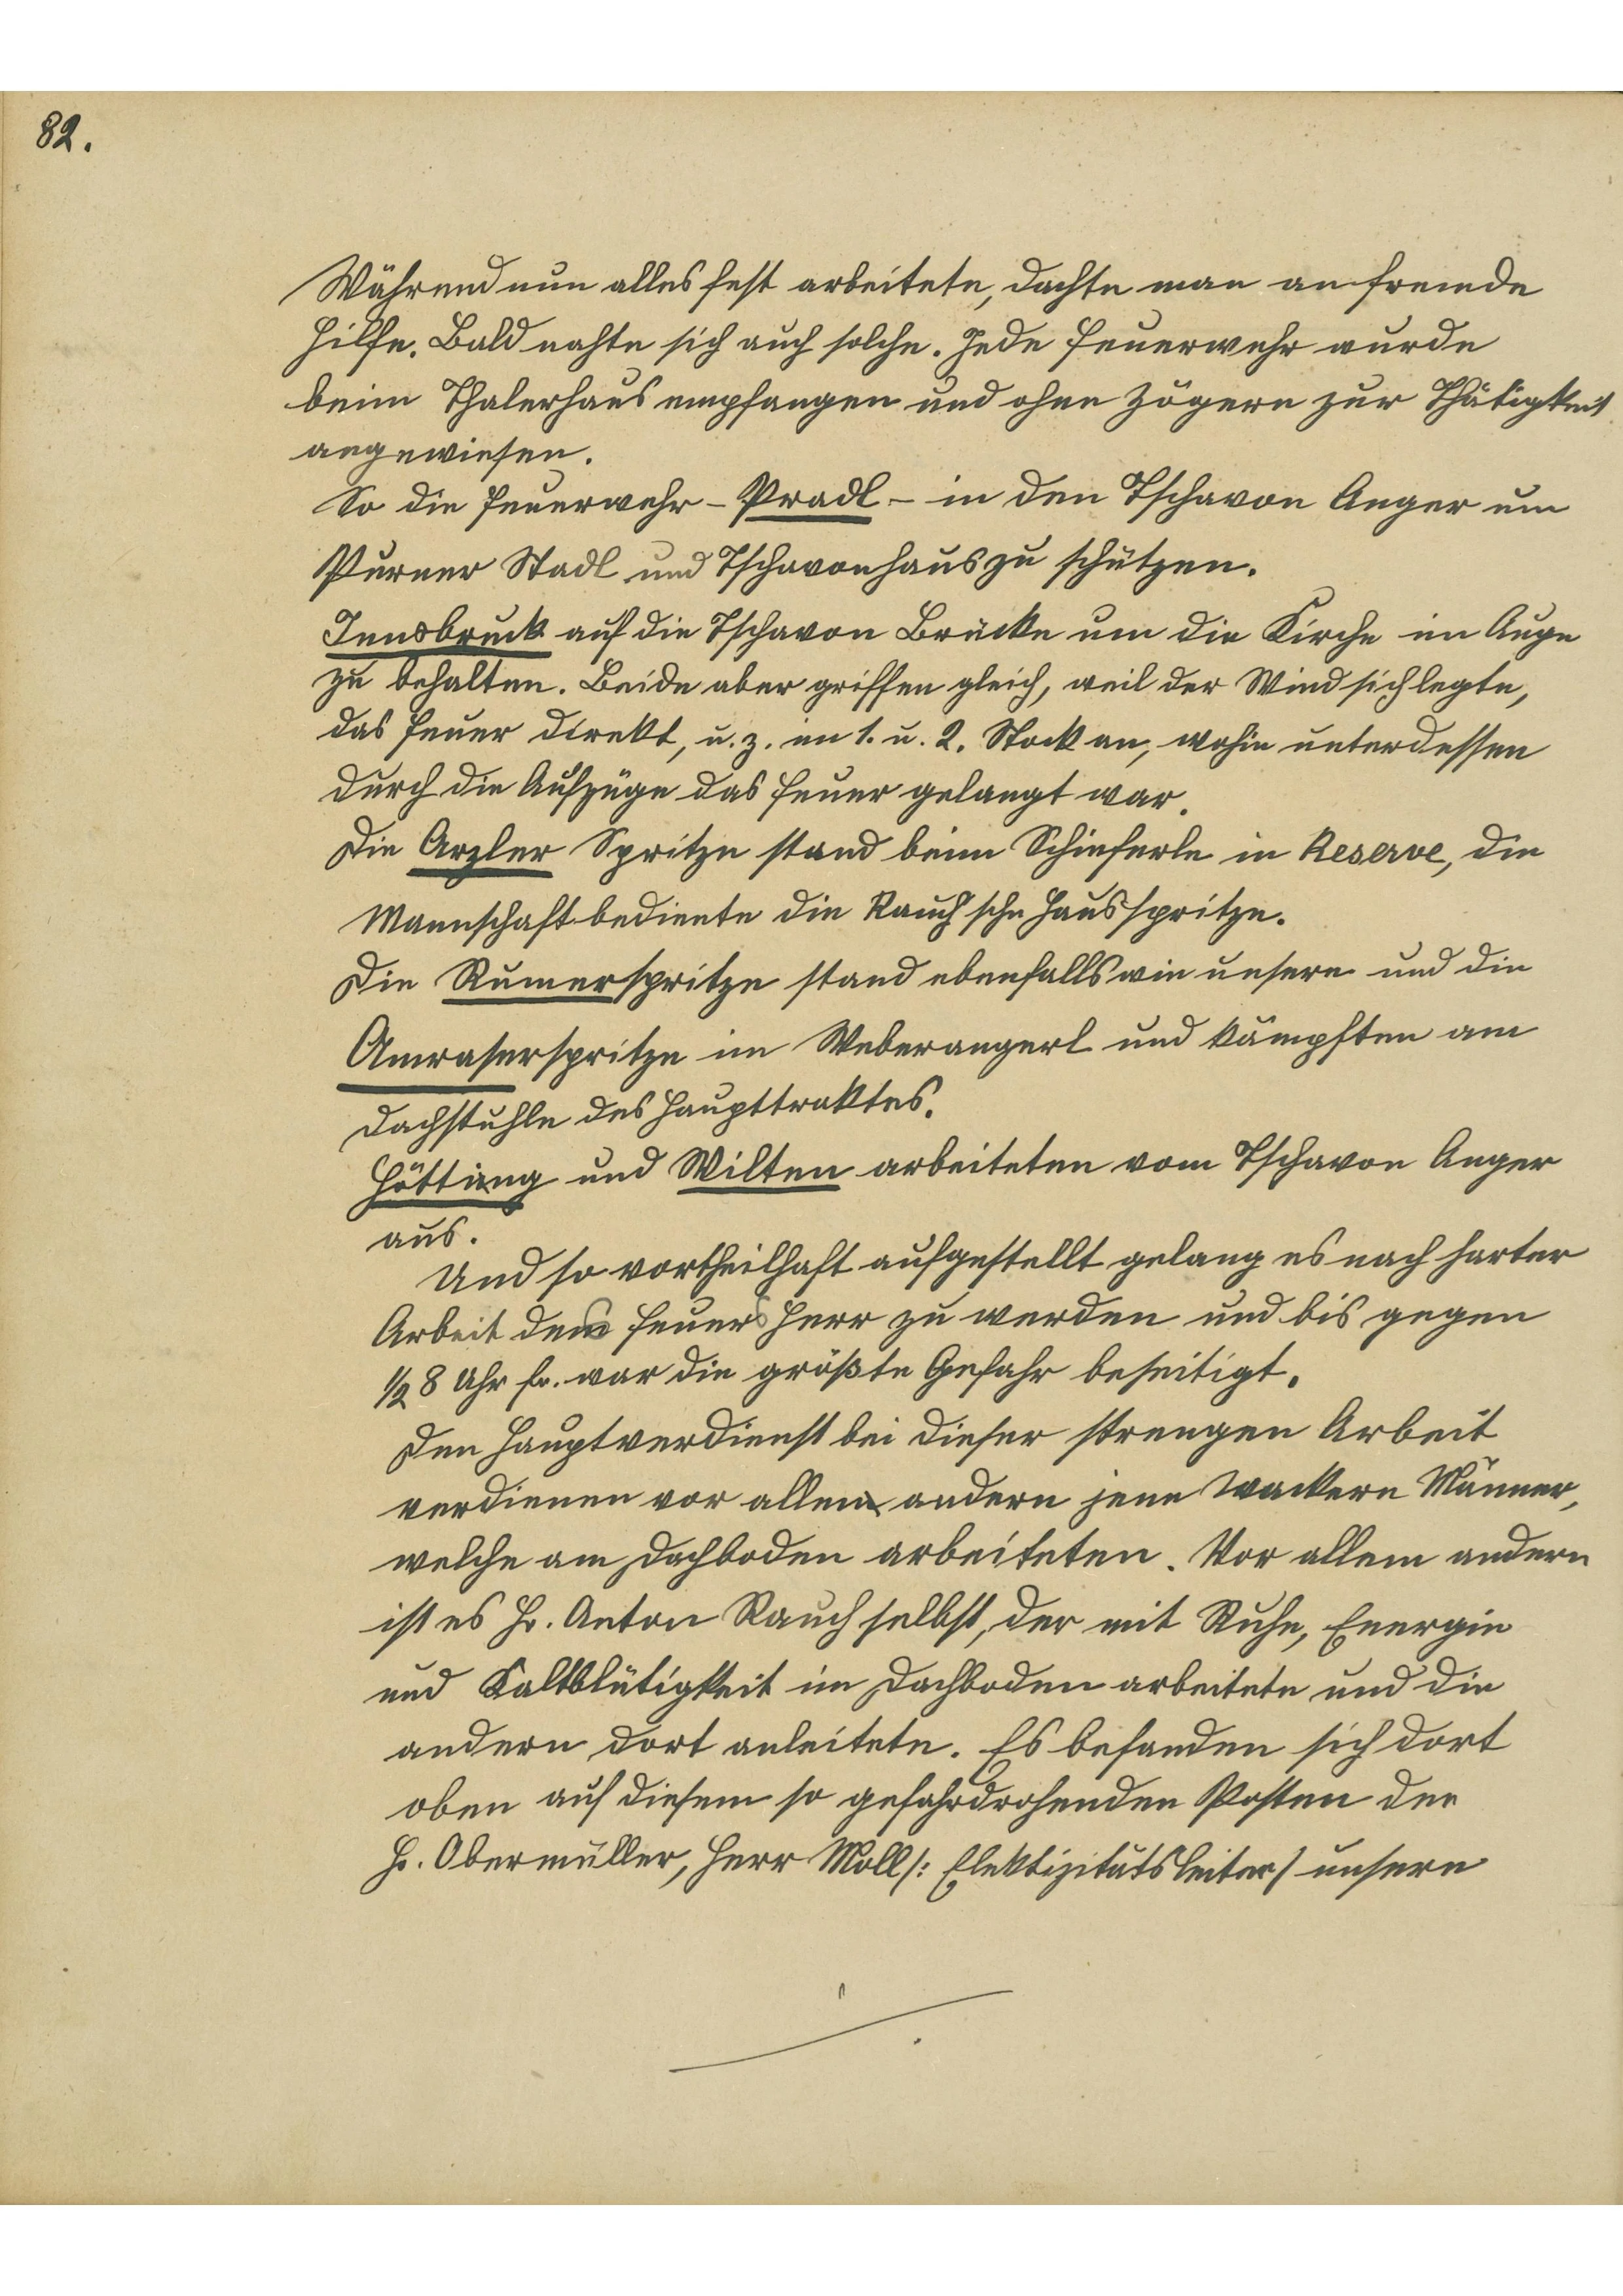 82.
Während nun alles fest arbeitete, dachte man an fremde
Hilfe. Bald nahte sich auch solche. Jede Feuerwehr wurde
beim Thalerhaus empfangen und ohne Zögern zur Thätigkeit
angewiesen.
So die Feuerwehr - Pradl - in den Tschavon Anger um
Purner Stadl und Tschavonhaus zu schützen.
Innsbruck auf die Tschavon Brücke um die Kirche im Auge
zu behalten. Beide aber griffen gleich, weil der Wind sich legte,
das Feuer direkt, u. z. im 1. u. 2. Stock an, wohin unterdessen
durch die Aufzüge das Feuer gelangt war.
Die Arzler Spritze stand beim Schieferle in Reserve, die
Mannschaft bediente die Rauch'sche Hausspritze.
Die Rumerspritze stand ebenfalls wie unsere und die
Amraserspritze im Weberangerl und kämpften am
Dachstuhle des Haupttraktes.
Hötting und Wilten arbeiteten vom Tschavon Anger
aus.
Und so vortheilhaft aufgestellt gelang es nach harter
Arbeit des Feuers Herr zu werden und bis gegen
1/2 8 Uhr fr. war die größte Gefahr beseitigt.
Den Hauptverdienst bei dieser strengen Arbeit
verdienen vor allen andern jene wackern Männer,
welche am Dachboden arbeiteten. Vor allem andern
ist es Hr. Anton Rauch selbst, der mit Ruhe, Energie
und Kaltblütigkeit im Dachboden arbeitete und die
andern dort anleitete. Es befanden sich dort
oben auf diesem so gefahrdrohenden Posten der
Hr. Obermüller, Herr Moll /: Elektizitätsleiter / unsere